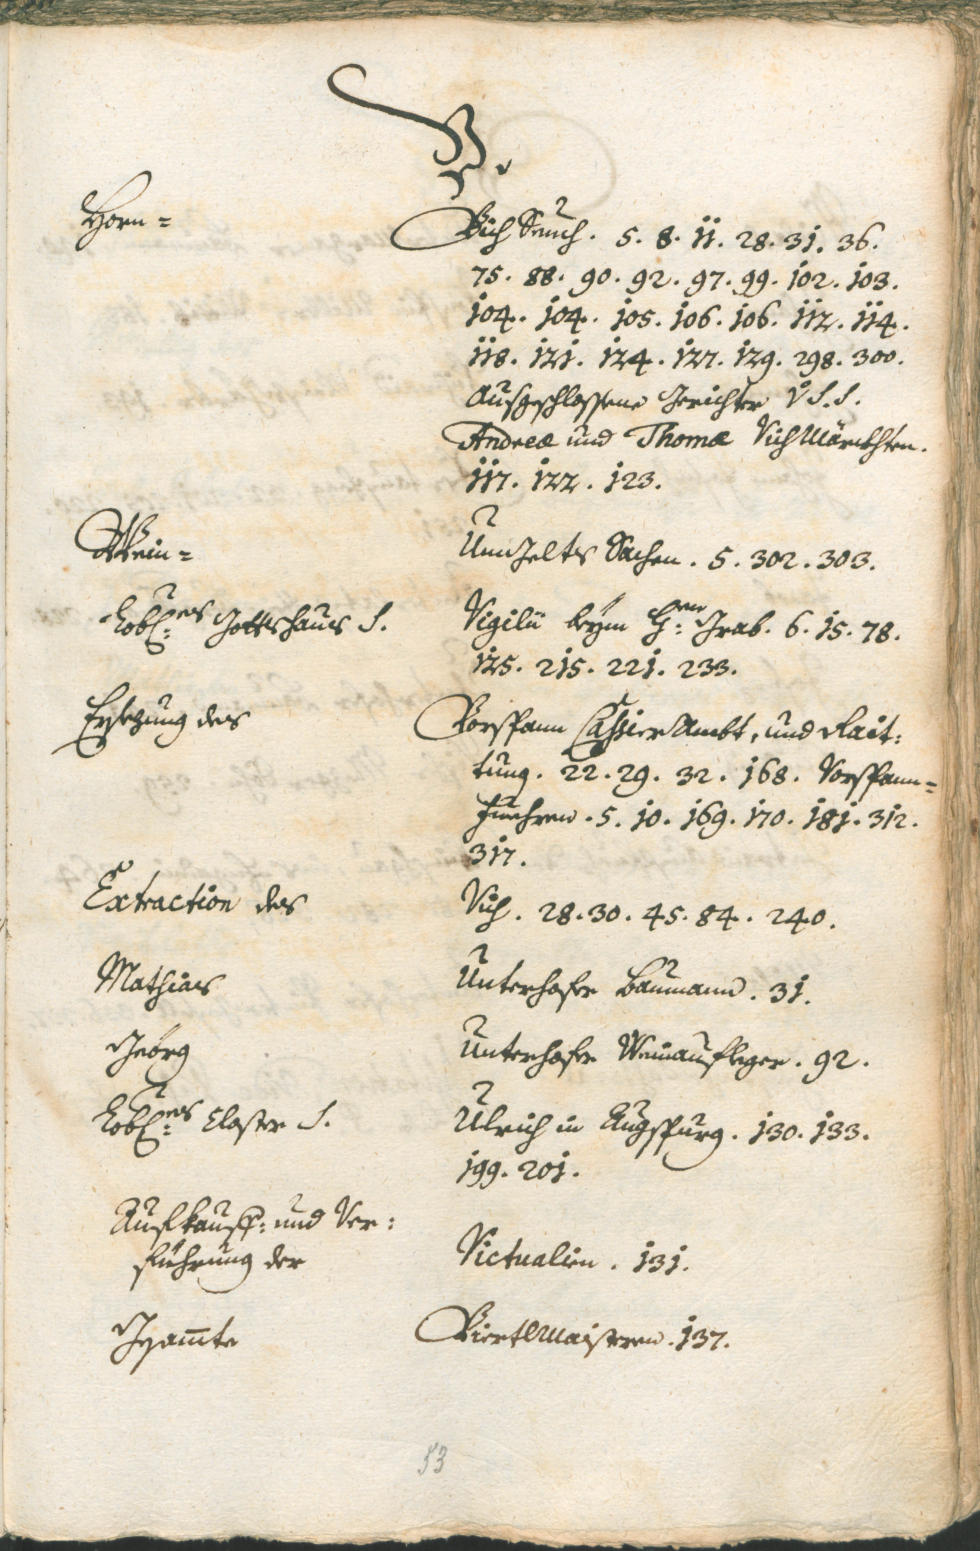 V.
Horn= Vich Seuch. 5. 8. 11. 28. 31. 36.
75. 88. 90. 92. 97. 99. 102. 103.
104. 104. 105. 106. 106. 112. 114.
118. 121. 124. 127. 129. 298. 300.
Ausgeschlossene Gerichter v S. S.
Andreæ und Thomæ Vich Märckhten.
117. 122. 123.
Wein= Umgelts Sachen. 5. 302. 303.
Löbl: es Gottshaus S. Vigilii beym H: en Grab. 6. 15. 78.
125. 215. 221. 233.
Ersetzung des Vorspann Cassier Ambt, und Rait:
tung. 22. 29. 32. 168. Vorspann=
Fuehren. 5. 10. 169. 170. 181. 312.
317.
Extraction des Vich. 28. 30. 45. 84. 240.
Mathias Unterhofer Baumann. 31.
Geörg Unterhofer Weinaufleger. 92.
Löbl: es Closter S. Ulrich in Augspurg. 130. 133.
199. 201.
Aufkauff: und Ver:
führung der Victualien. 131.
Gesamte Viertl Maisteren. 137.
53